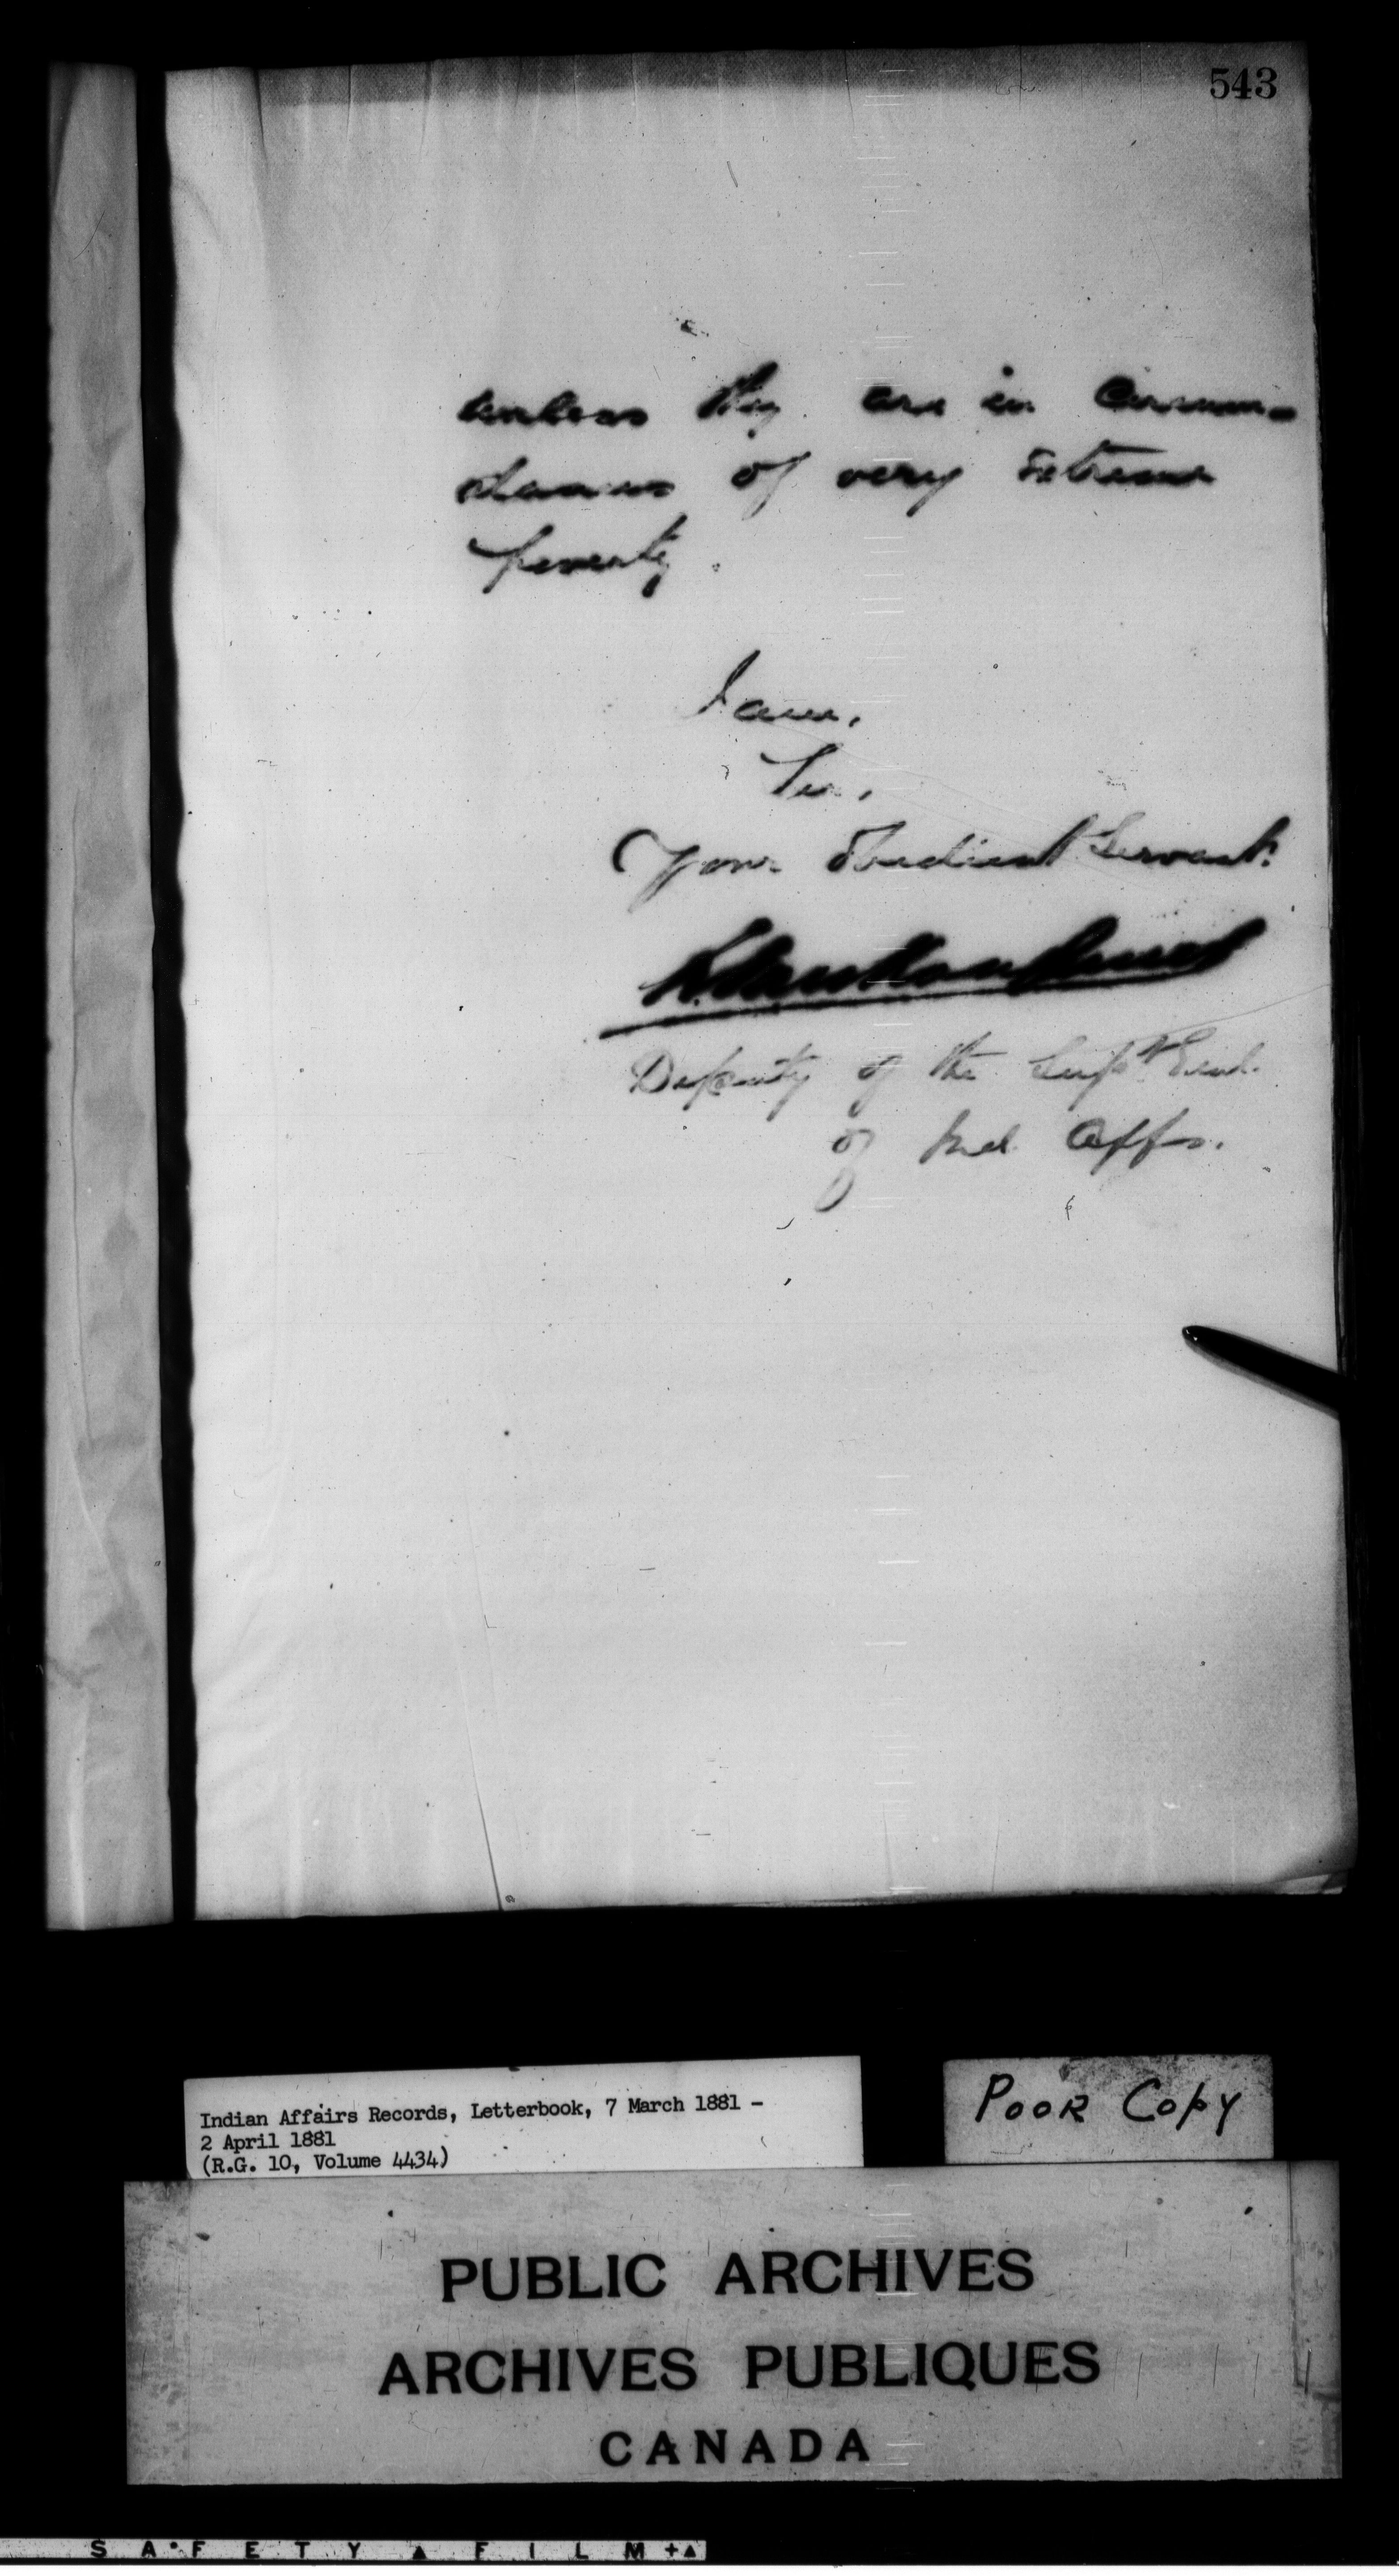 543
unless they are in circum-
stances of very extreme
poverty.
I am,
Sir,
Your Obedient Servant.
L. Vankoughnet
Deputy of the Supt Genl.
of Ind. Affs.
Indian Affairs Records, Letterbook, 7 March 1881 -
2 April 1881
(R.G. 10, Volume 4434)
POOR COPY
PUBLIC ARCHIVES
ARCHIVES PUBLIQUES
CANADA
SAFETY FILM